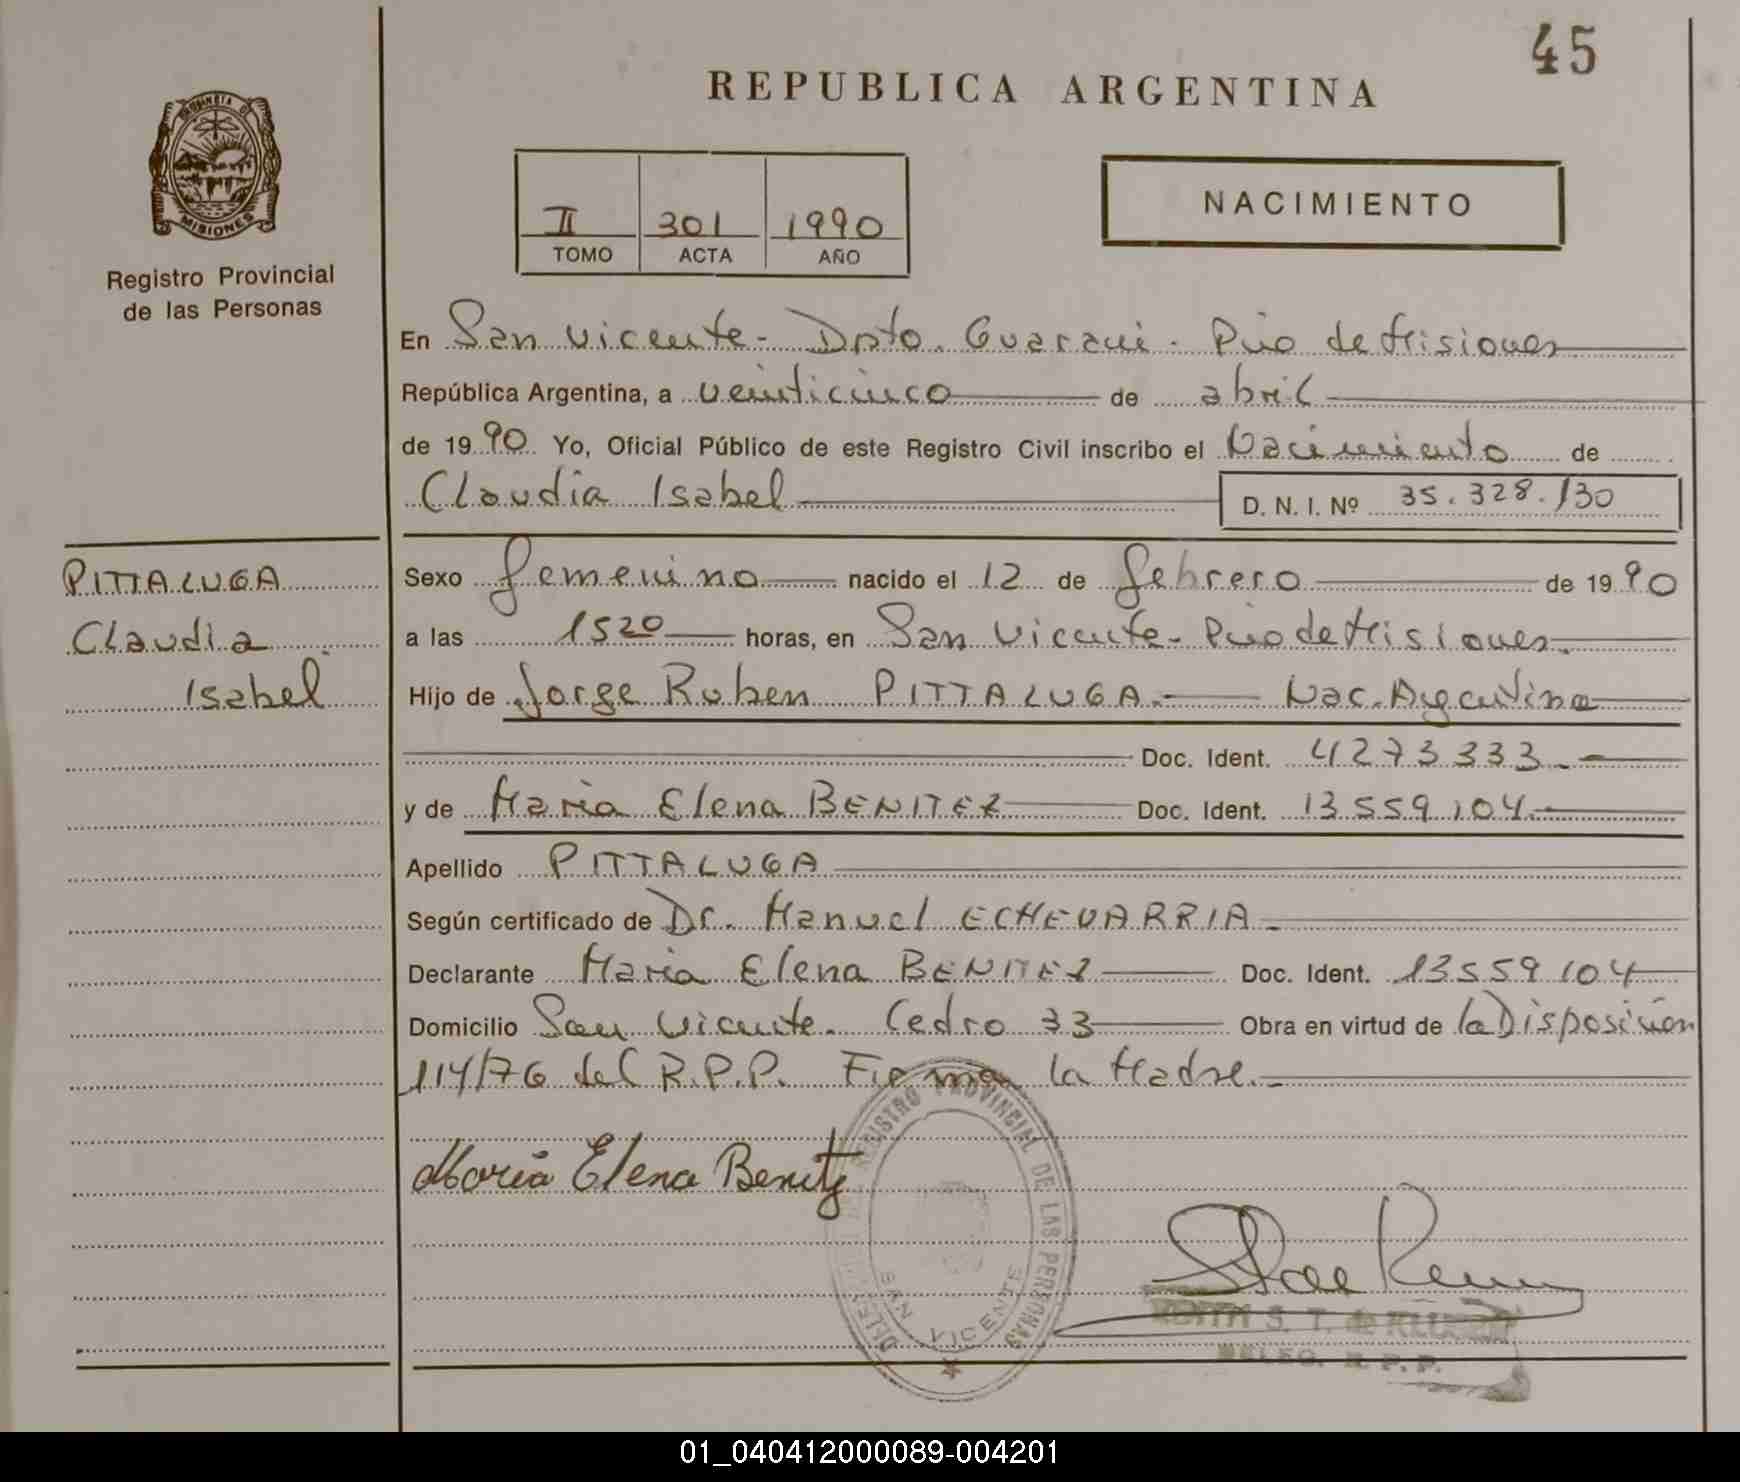 45
REPUBLICA ARGENTINA
PROVINCIA D
MISIONES
Registro Provincial
de las Personas
II 301 1990
TOMO ACTA AÑO
NACIMIENTO
En San Vicente - Dpto. Guarani - Pcio de Misiones
República Argentina, a veinticinco de abril
de 1990 Yo, Oficial Público de este Registro Civil inscribo el Nacimiento de
Claudia Isabel D. N. I. Nº 35.328.130
PITTALUGA
Claudia
Isabel
Sexo femenino nacido el 12 de febrero de 1990
a las 1520 horas, en San Vicente - Pcio de Misiones.
Hijo de Jorge Ruben PITTALUGA.- Nac. Argentina
Doc. Ident. 4273333.-
y de Maria Elena BENITEZ Doc. Ident. 13559104.-
Apellido PITTALUGA
Según certificado de Dr. Manuel ECHEVARRIA.-
Declarante Maria Elena BENITEZ Doc. Ident. 13559104
Domicilio San Vicente. Cedro 33 Obra en virtud de la Disposición
114/76 del R.P.P. Firma la Madre.-
Maria Elena Benitz
REGISTRO PROVINCIAL DE LAS PERSONAS
SAN VICENTE
EDITH S. T. de
DELEG. R. P. P.
01_040412000089-004201